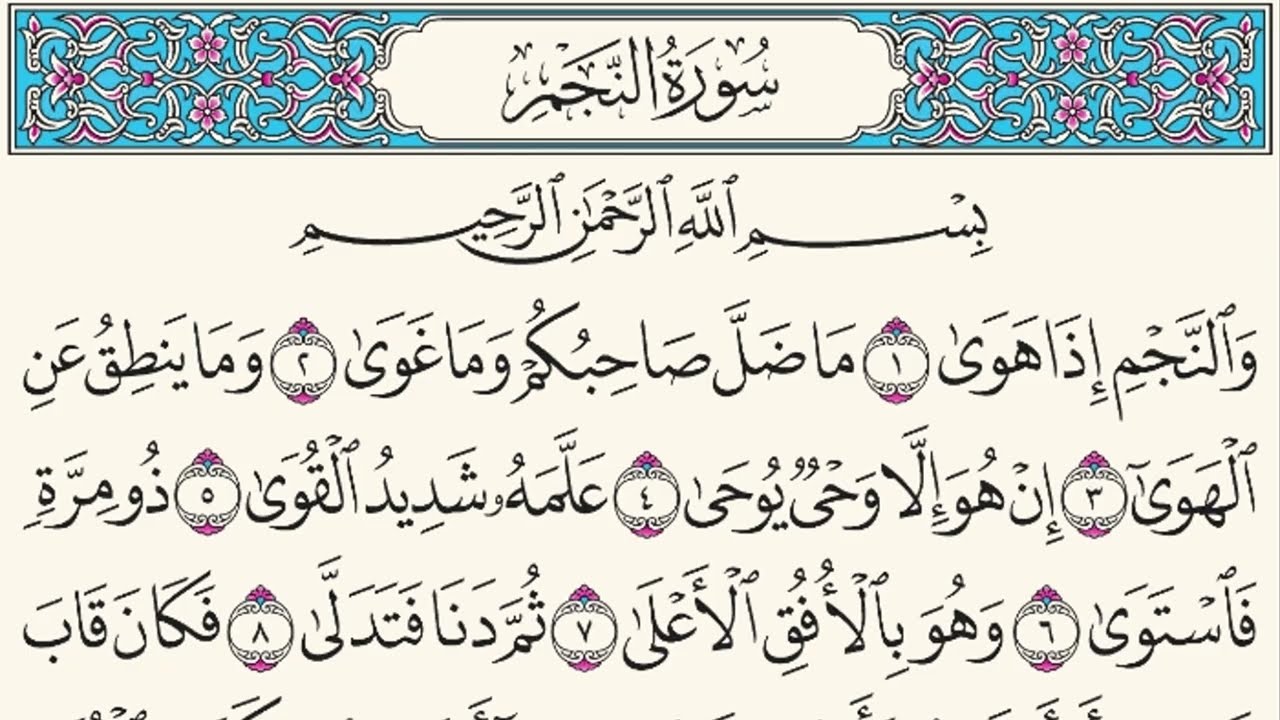 سُورَةُ النَّجْمِ
بِسْمِ ٱللَّهِ ٱلرَّحْمَٰنِ ٱلرَّحِيمِ
وَٱلنَّجْمِ إِذَا هَوَىٰ ١ مَا ضَلَّ صَاحِبُكُمْ وَمَا غَوَىٰ ٢ وَمَا يَنطِقُ عَنِ
ٱلْهَوَىٰٓ ٣ إِنْ هُوَ إِلَّا وَحْىٌ يُوحَىٰ ٤ عَلَّمَهُۥ شَدِيدُ ٱلْقُوَىٰ ٥ ذُو مِرَّةٍ
فَٱسْتَوَىٰ ٦ وَهُوَ بِٱلْأُفُقِ ٱلْأَعْلَىٰ ٧ ثُمَّ دَنَا فَتَدَلَّىٰ ٨ فَكَانَ قَابَ